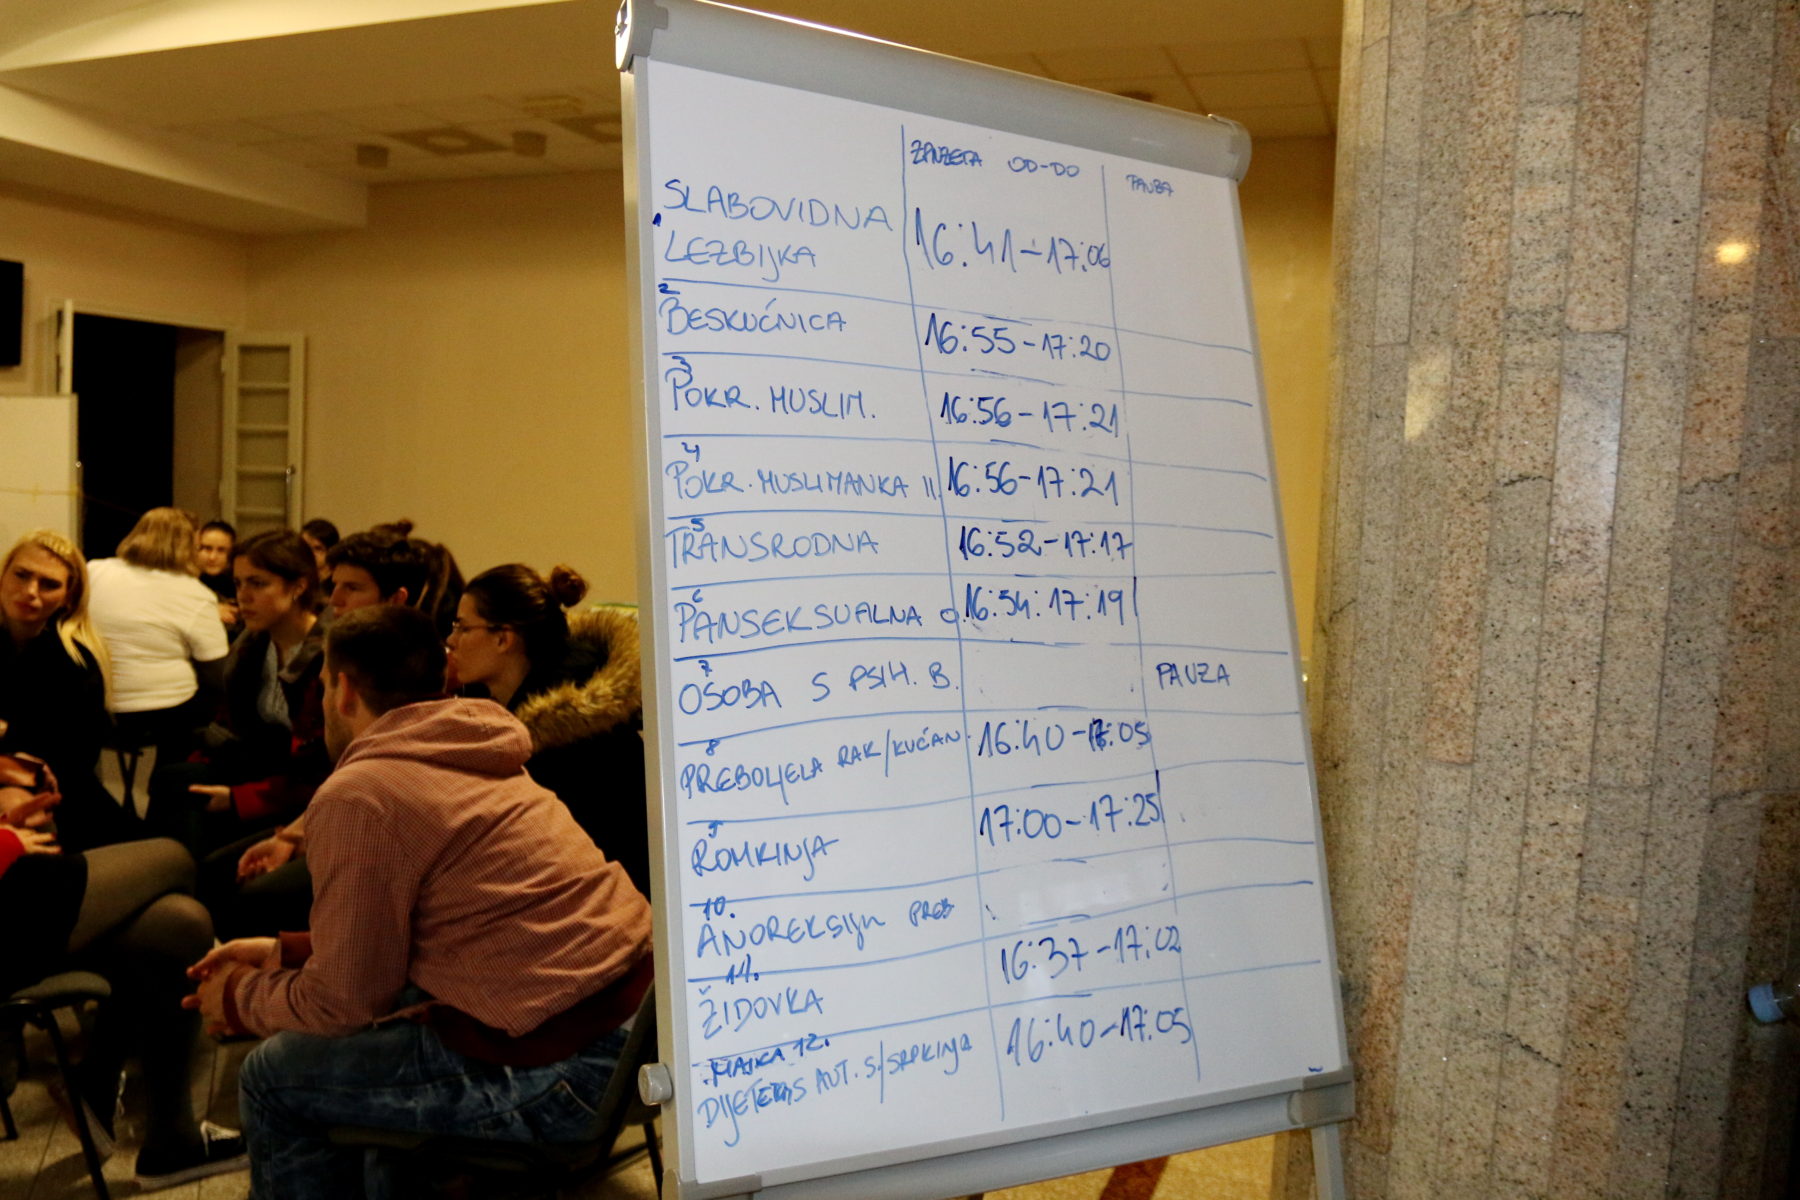 ZAUZETA OD-DO PAUZA
1 SLABOVIDNA
LEZBIJKA 16:41-17:06
2
BESKUĆNICA 16:55-17:20
3
POKR. MUSLIM. 16:56-17:21
4
POKR. MUSLIMANKA II 16:56-17:21
5
TRANSRODNA 16:52-17:17
6
PANSEKSUALNA O. 16:54-17:19
7
OSOBA S PSIH. B. PAUZA
8
PREBOLJELA RAK/KUĆAN. 16:40-17:05
9
ROMKINJA 17:00-17:25
10.
ANOREKSIJU PREB
11.
ŽIDOVKA 16:37-17:02
MAJKA 12.
DIJETETA S AUT. S./SRPKINJA 16:40-17:05